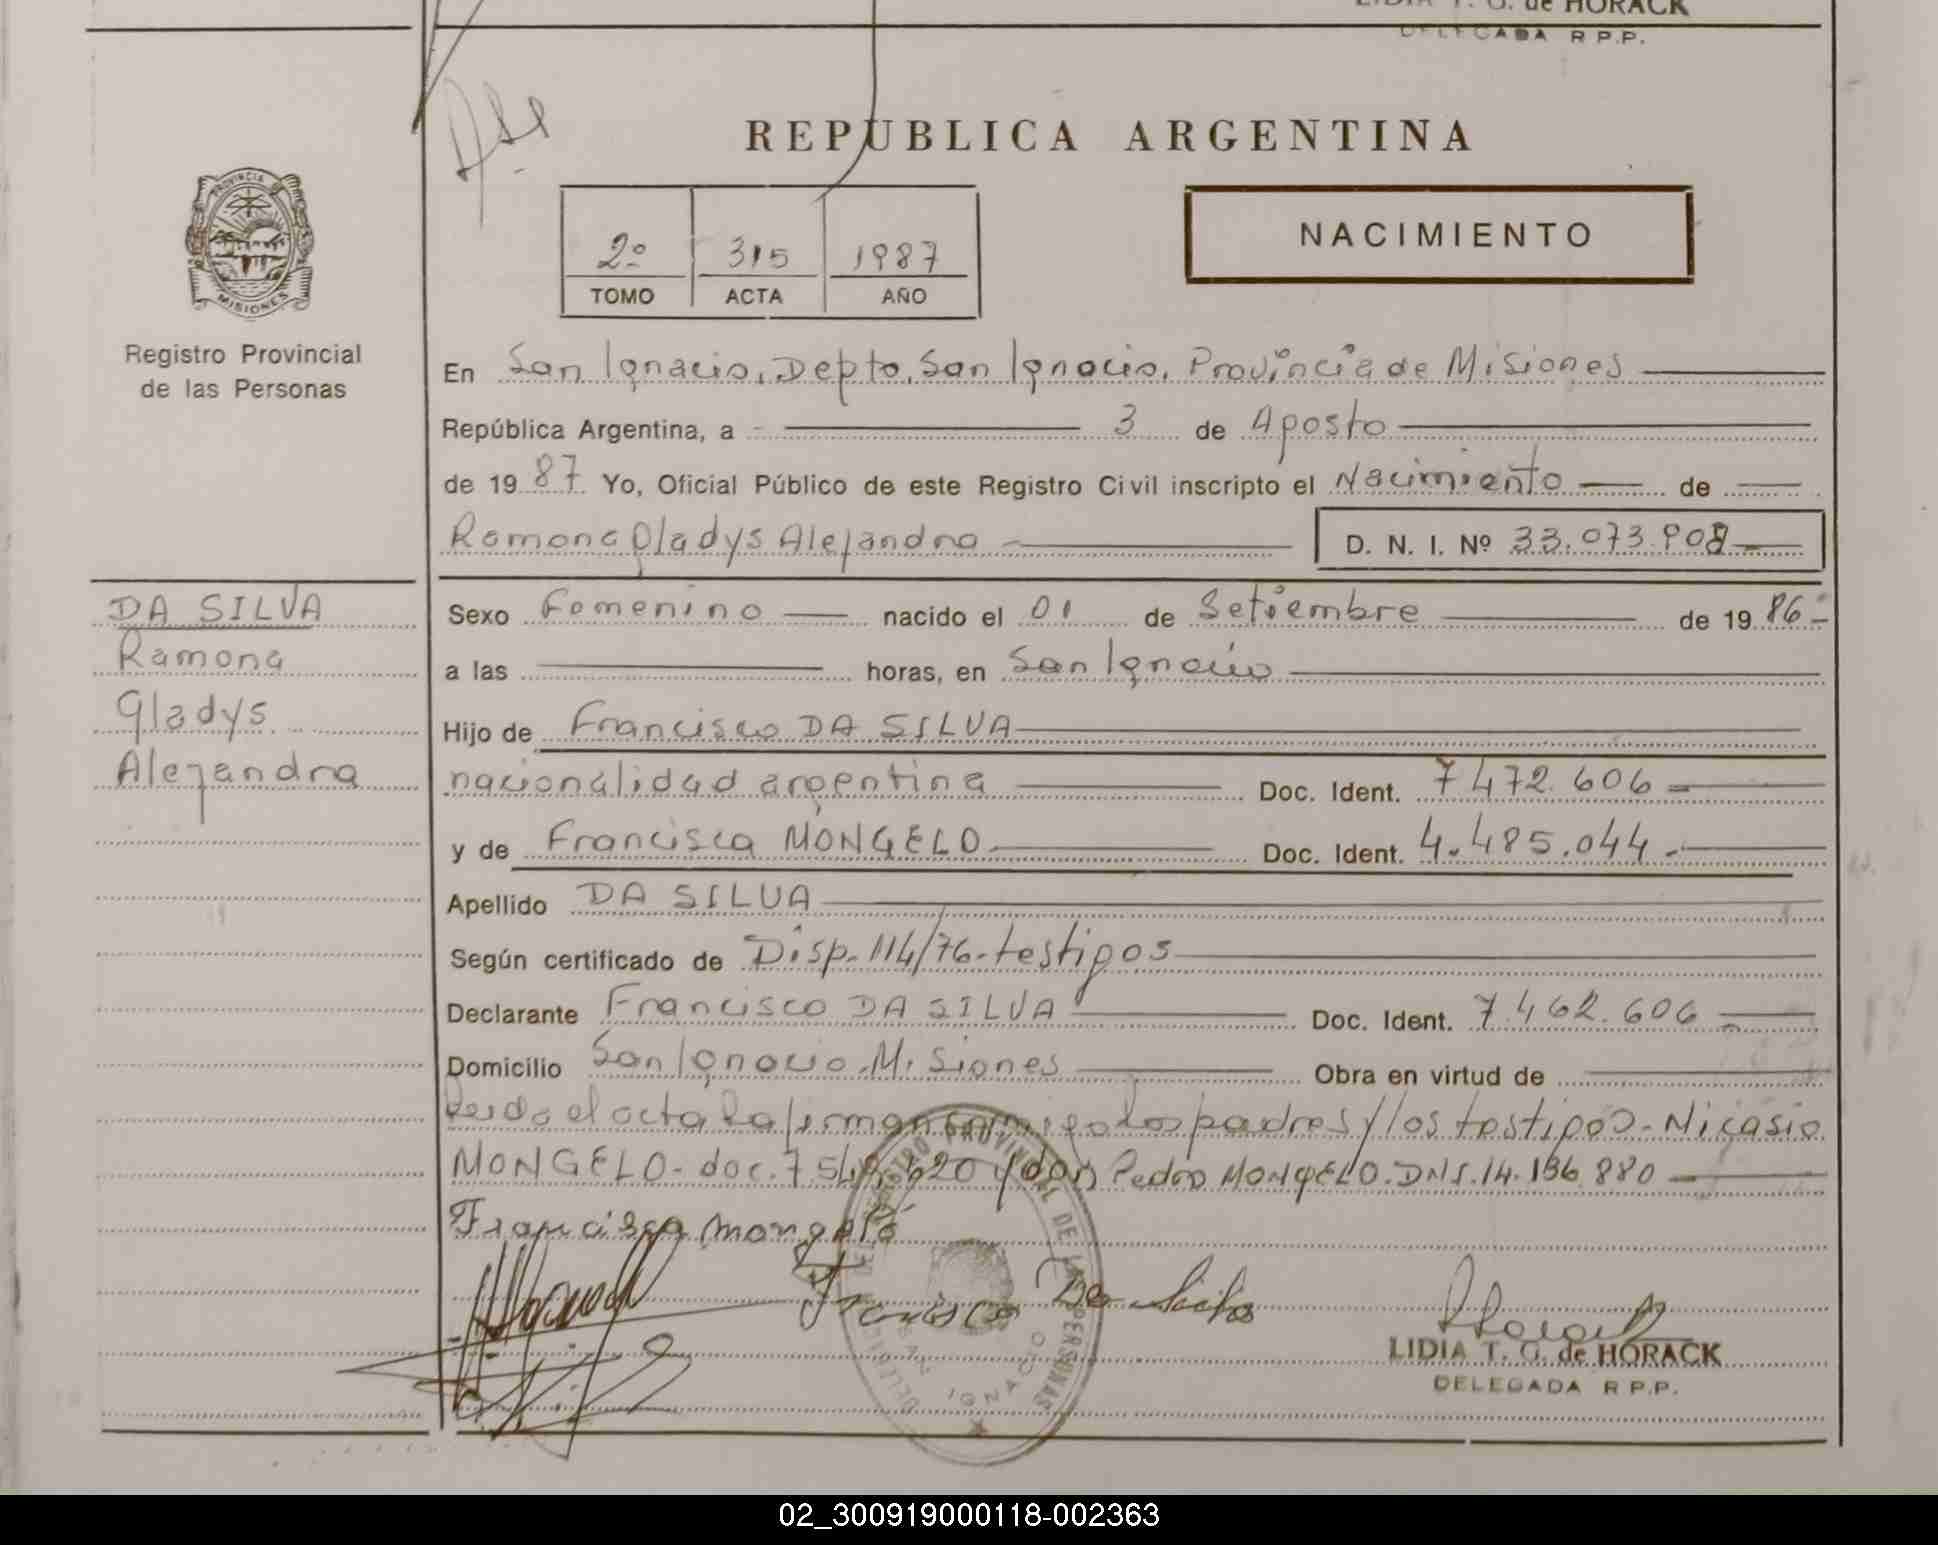 LIDIA T. G. de HORACK
DELEGADA R P.P.
REPUBLICA ARGENTINA
PROVINCIA
MISIONES
Registro Provincial
de las Personas
2º 315 1987
TOMO ACTA AÑO
NACIMIENTO
En San Ignacio, Depto, San Ignacio, Provincia de Misiones
República Argentina, a 3 de Agosto
de 19 87 Yo, Oficial Público de este Registro Civil inscripto el Nacimiento de
Ramona Gladys Alejandra D. N. I. Nº 33.073.908
DA SILVA
Ramona
Gladys
Alejandra
Sexo Femenino nacido el 01 de Setiembre de 19 86-
a las horas, en San Ignacio
Hijo de Francisco DA SILVA
nacionalidad argentina Doc. Ident. 7 472.606
y de Francisca MONGELO Doc. Ident. 4.485.044.
Apellido DA SILVA
Según certificado de Disp. 114/76-testigos
Declarante Francisco DA SILVA Doc. Ident. 7.462.606
Domicilio San Ignacio-Misiones Obra en virtud de
Leida el acta la firman conmigo los padres y los testigos-Nicasio
MONGELO-doc. 7 620 y don Pedro MONGELO. DNI. 14.136 880
Francisca mongeló
Francisco Da Silva
REGISTRO PROVINCIAL DE LAS PERSONAS
SAN IGNACIO
LIDIA T. G. de HORACK
DELEGADA R P.P.
02_300919000118-002363